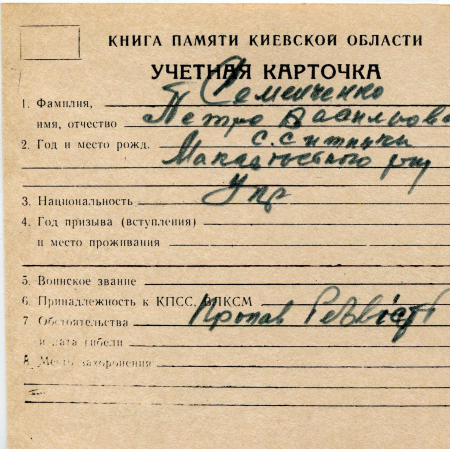 КНИГА ПАМЯТИ КИЕВСКОЙ ОБЛАСТИ
УЧЕТНАЯ КАРТОЧКА
1. Фамилия, Семенченко
имя, отчество Петро
2. Год и место рожд. с. Ситняки
Макарівського р-ну
3. Национальность Укр
4. Год призыва (вступления)
и место проживания
5. Воинское звание
6. Принадлежность к КПСС, ВЛКСМ
7 Обстоятельства Пропав
и дата гибели
8. Место захоронения